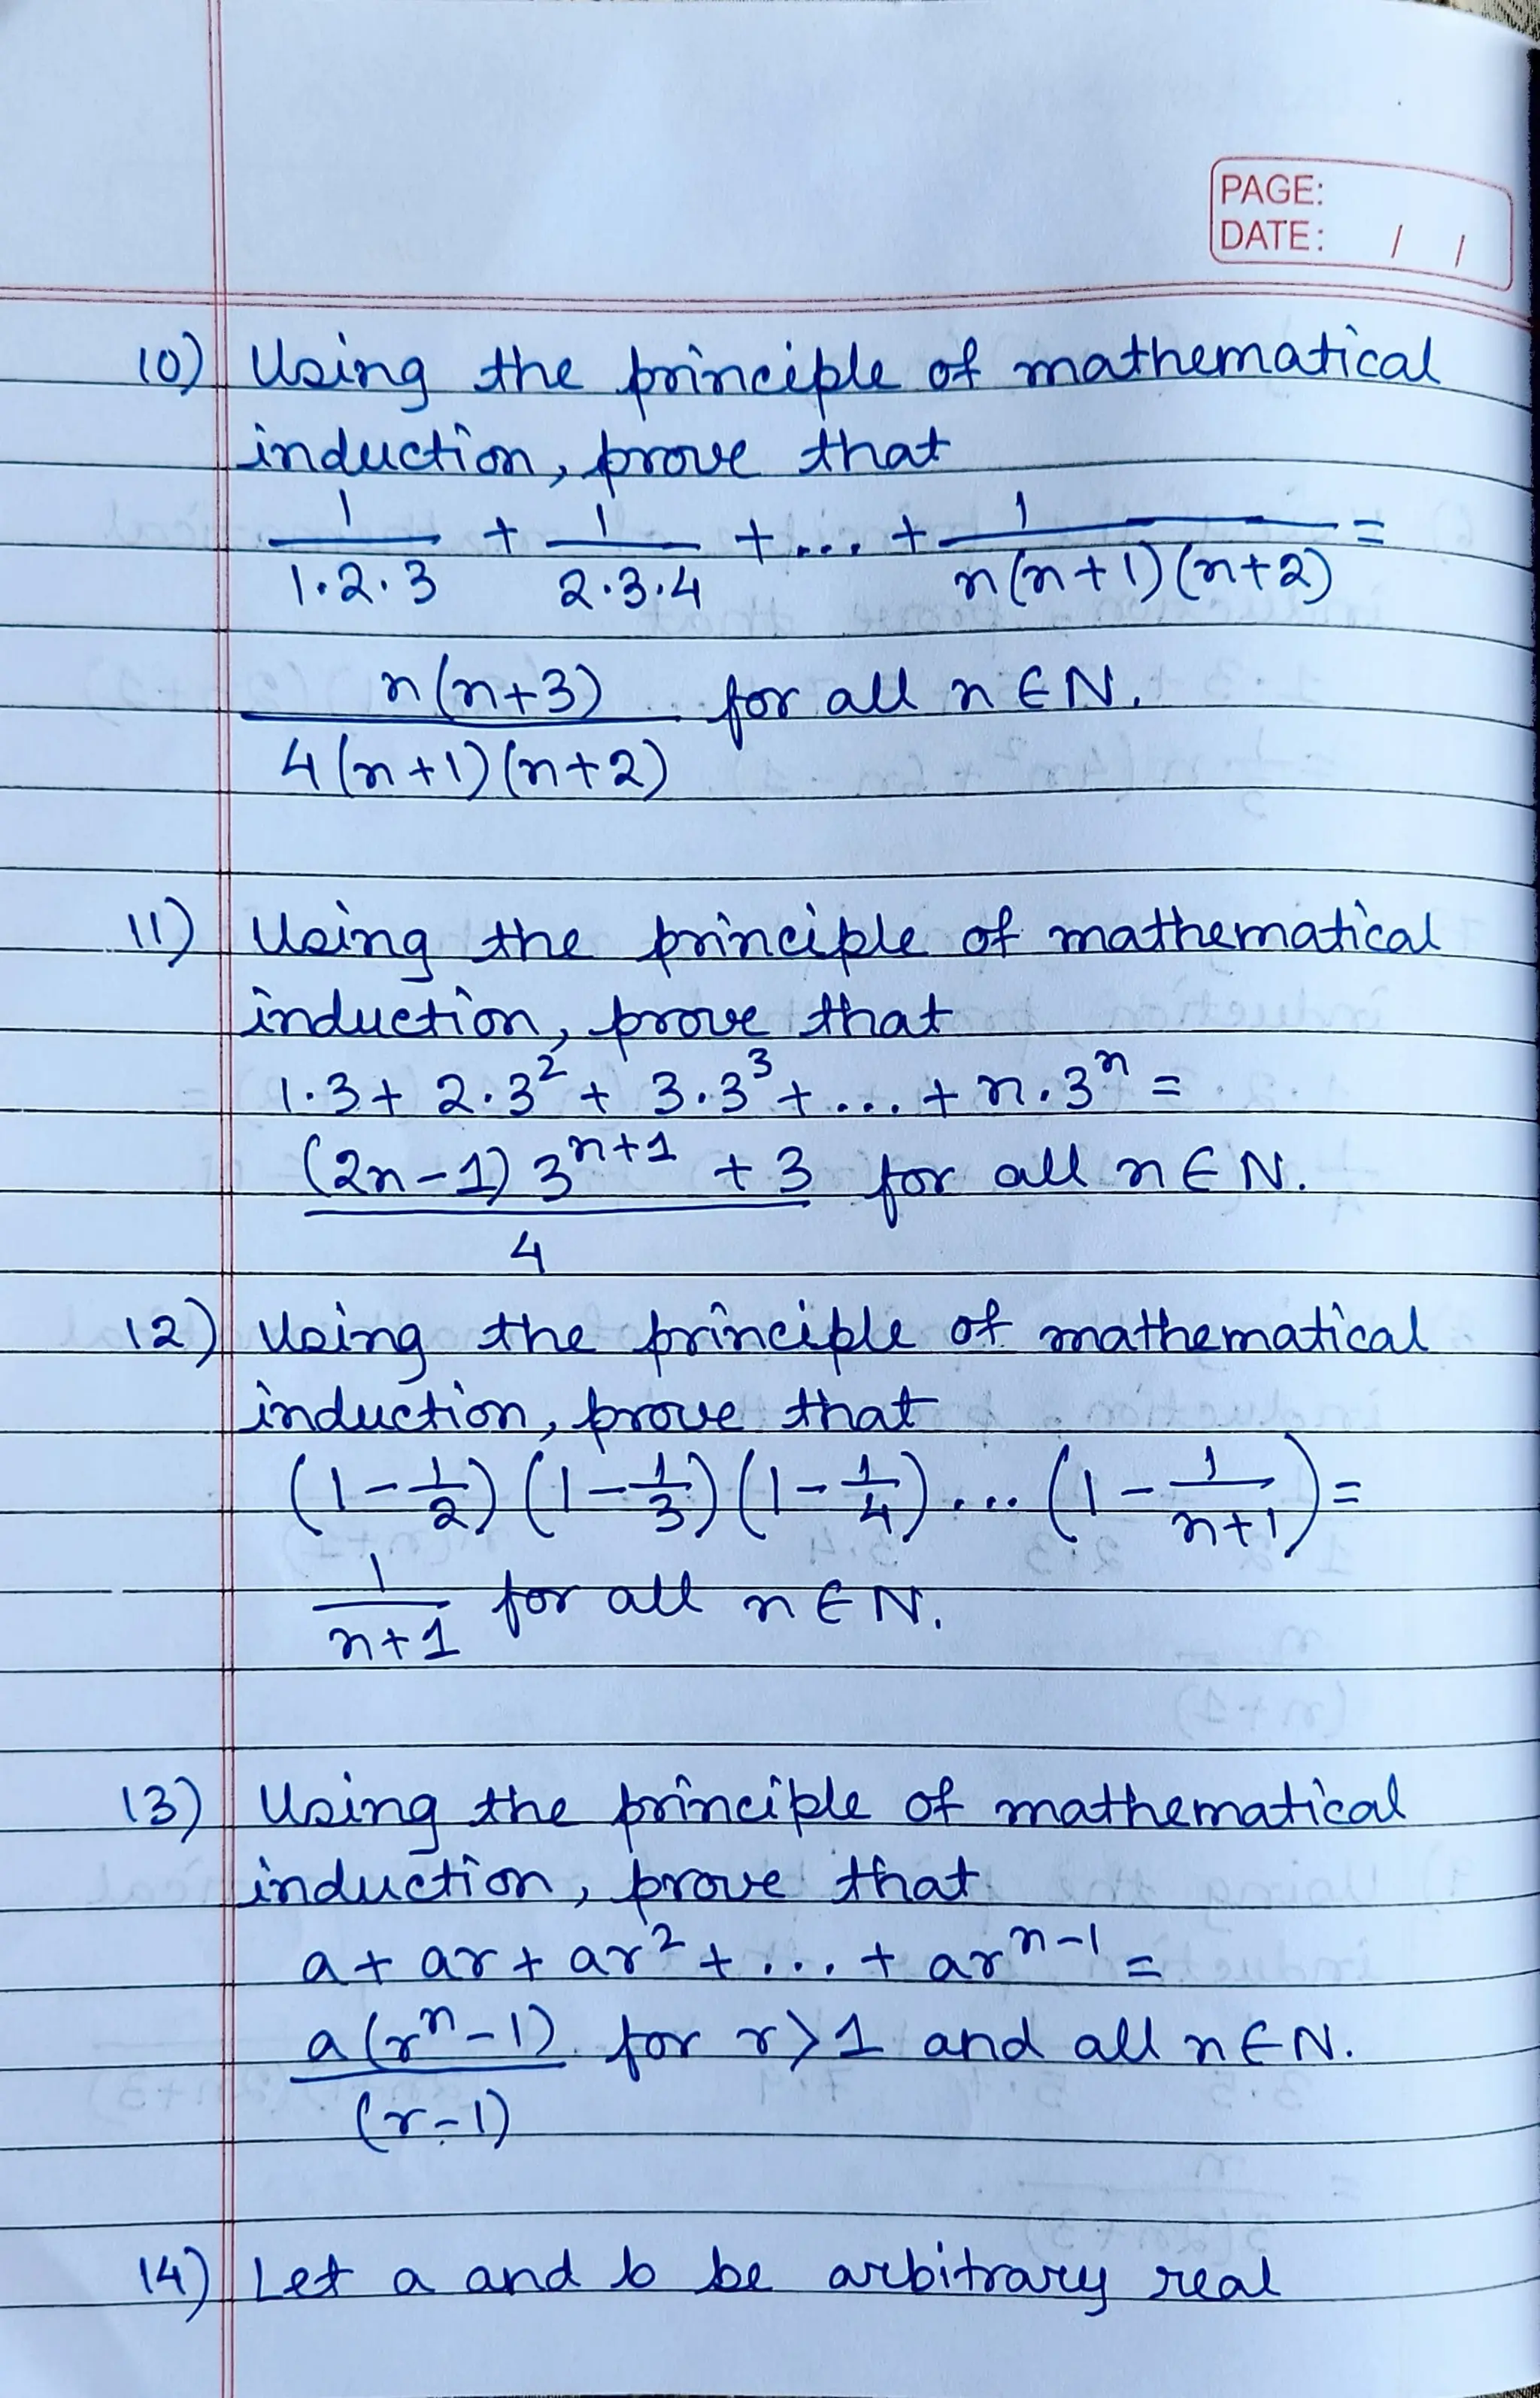 PAGE:
DATE: / /
10) Using the principle of mathematical
induction, prove that
1/(1·2·3) + 1/(2·3·4) + ... + 1/(n(n+1)(n+2)) =
n(n+3)/(4(n+1)(n+2)) for all n ∈ N.
11) Using the principle of mathematical
induction, prove that
1·3 + 2·3² + 3·3³ + ... + n·3ⁿ =
((2n-1) 3ⁿ⁺¹ + 3)/4 for all n ∈ N.
12) Using the principle of mathematical
induction, prove that
(1 - 1/2) (1 - 1/3) (1 - 1/4) ... (1 - 1/(n+1)) =
1/(n+1) for all n ∈ N.
13) Using the principle of mathematical
induction, prove that
a + ar + ar² + ... + arⁿ⁻¹ =
a(rⁿ-1)/(r-1) for r>1 and all n ∈ N.
14) Let a and b be arbitrary real